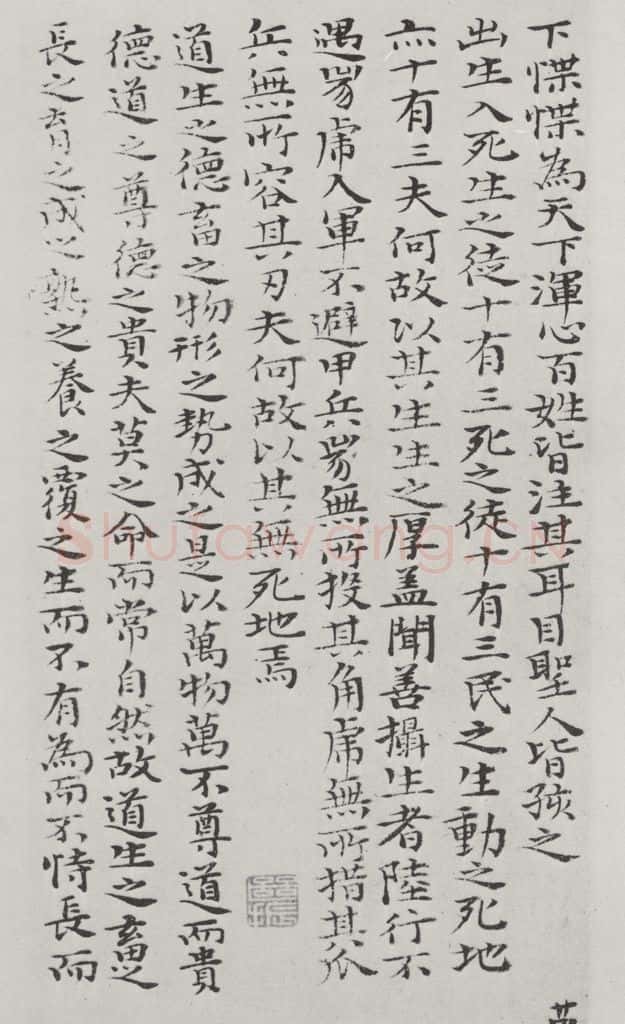 下惵惵為天下渾心百姓皆注其耳目聖人皆孩之
出生入死生之徒十有三死之徒十有三民之生動之死地
亦十有三夫何故以其生生之厚盖聞善攝生者陸行不
遇兕虎入軍不避甲兵兕無所投其角虎無所措其爪
兵無所容其刃夫何故以其無死地焉
道生之德畜之物形之勢成之是以萬物萬不尊道而貴
德道之尊德之貴夫莫之命而常自然故道生之畜之
長之育之成之熟之養之覆之生而不有為而不恃長而
Shufawang.CN